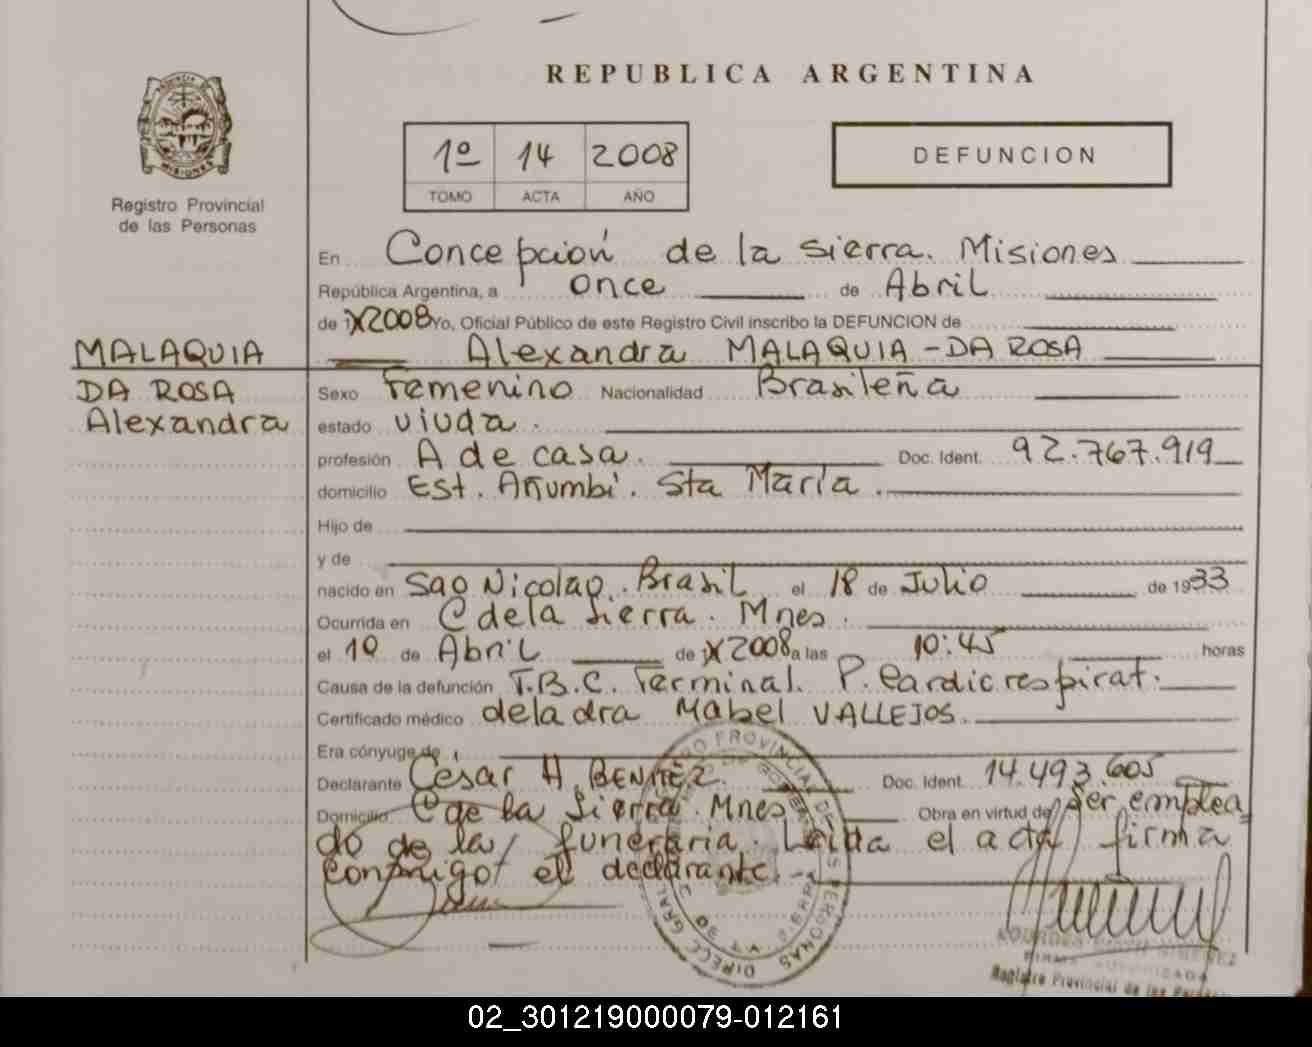 REPUBLICA ARGENTINA
1º 14 2008
TOMO ACTA AÑO
DEFUNCION
MISIONES
Registro Provincial
de las Personas
En Concepción de la Sierra. Misiones
República Argentina, a once de Abril
de 1X2008 Yo, Oficial Público de este Registro Civil inscribo la DEFUNCION de
Alexandra MALAQUIA - DA ROSA
MALAQUIA
DA ROSA
Alexandra
Sexo Femenino Nacionalidad Brasileña
estado viuda.
profesión A de casa. Doc. Ident. 92.767.919
domicilio Est. Añumbí. Sta María.
Hijo de
y de
nacido en Sao Nicolao. Brasil el 18 de Julio de 1933
Ocurrida en C de la Sierra. Mnes.
el 10 de Abril de 1X2008 a las 10:45 horas
Causa de la defunción T.B.C. Terminal. P. Cardiorespirat.
Certificado médico de la dra Mabel VALLEJOS.
Era cónyuge de
Declarante Cesar H. BENITEZ Doc. Ident. 14.493.605
Domicilio C de la Sierra. Mnes Obra en virtud de Ser emplea
do de la funeraria. Leida el acta firma
conmigo el declarante.-
REGISTRO PROVINCIAL DE LAS PERSONAS
DIRECC. GRAL.
FIRMA AUTORIZADA
Registro Provincial de las Personas
02_301219000079-012161